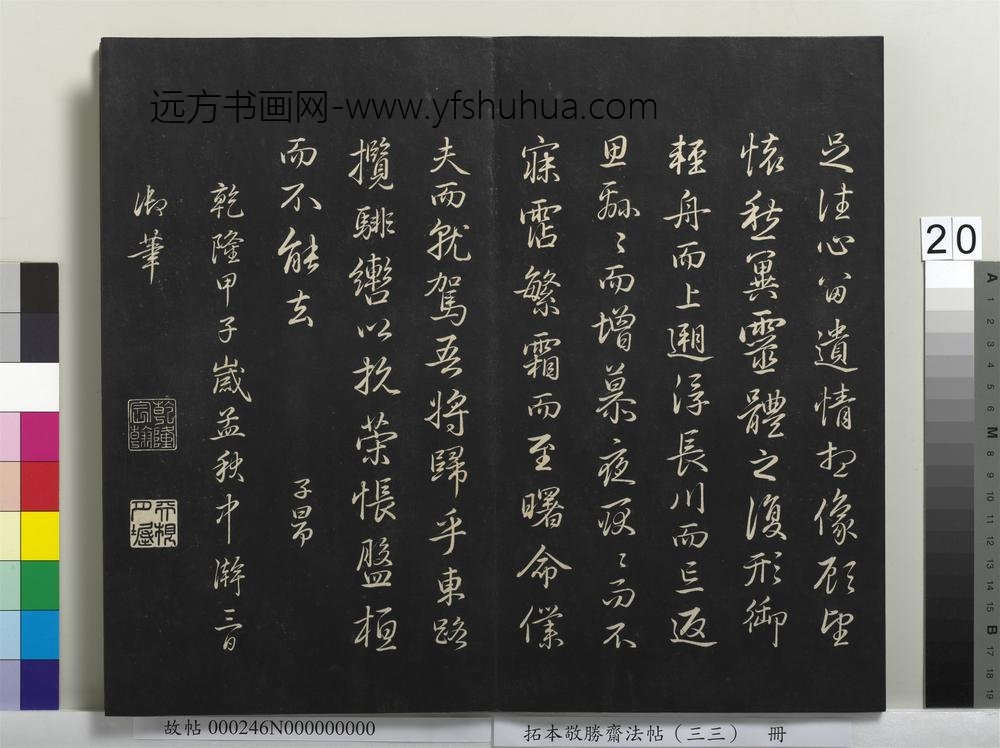 远方书画网-www.yfshuhua.com
足往心留遺情想像顧望
懷愁冀靈體之復形御
輕舟而上遡浮長川而忘返
思緜〻而增慕夜耿〻而不
寐霑繁霜而至曙命僕
夫而就駕吾將歸乎東路
攬騑轡以抗策悵盤桓
而不能去
子昂
乾隆甲子歲孟秋中澣三日
御筆
乾隆宸翰
20
A
1
2
3
4
5
6
M
8
9
10
11
12
13
14
15
B
17
18
19
故帖 000246N000000000
拓本敬勝齋法帖（三三） 冊